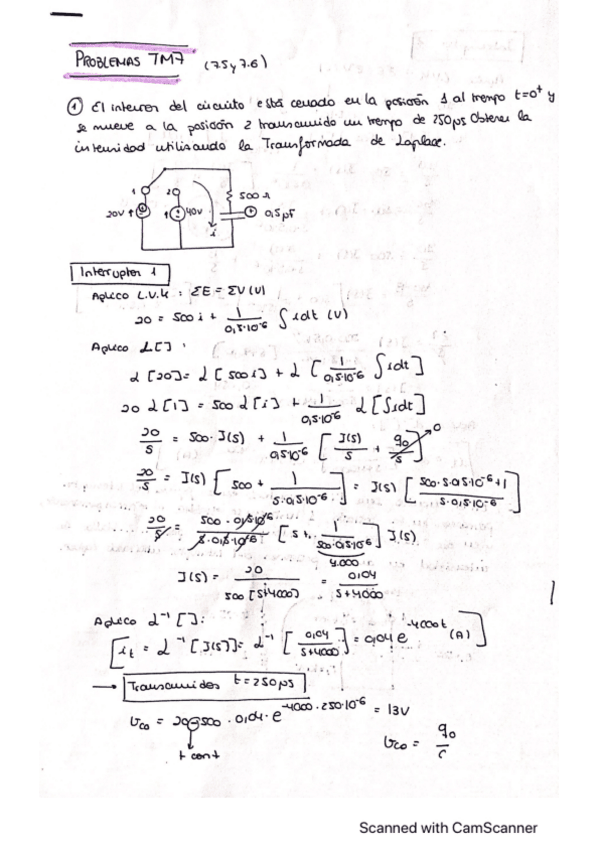 PROBLEMAS TM7 (7.5 y 7.6)
① El interruptor del circuito está cerrado en la posición 1 al tiempo t=0⁺ y
se mueve a la posición 2 transcurrido un tiempo de 250μs Obtener la
intensidad utilizando la Transformada de Laplace.
1 2
500 Ω
20V 40V 0,5μF
i
Interruptor 1
Aplico L.V.K: ΣE = ΣV (V)
20 = 500i + 1/0,5·10⁻⁶ ∫idt (V)
Aplico L[]:
L[20] = L[500i] + L[1/0,5·10⁻⁶ ∫idt]
20 L[1] = 500 L[i] + 1/0,5·10⁻⁶ L[∫idt]
20/s = 500·I(s) + 1/0,5·10⁻⁶ [I(s)/s + q₀/s] 0
20/s = I(s) [500 + 1/s·0,5·10⁻⁶] = I(s) [500·s·0,5·10⁻⁶+1/s·0,5·10⁻⁶]
20/s = 500·0,5·10⁻⁶/s·0,5·10⁻⁶ [s + 1/500·0,5·10⁻⁶] I(s)
4.000
I(s) = 20/500[s+4000] = 0,04/s+4000
Aplico L⁻¹[]:
[i_t = L⁻¹[I(s)] = L⁻¹[0,04/s+4000] = 0,04 e^-4000t (A)]
→ Transcurridos t=250μs
V_co = 20-500·0,04·e^-4000·250·10⁻⁶ = 13V
t cont
V_co = q₀/c
Scanned with CamScanner